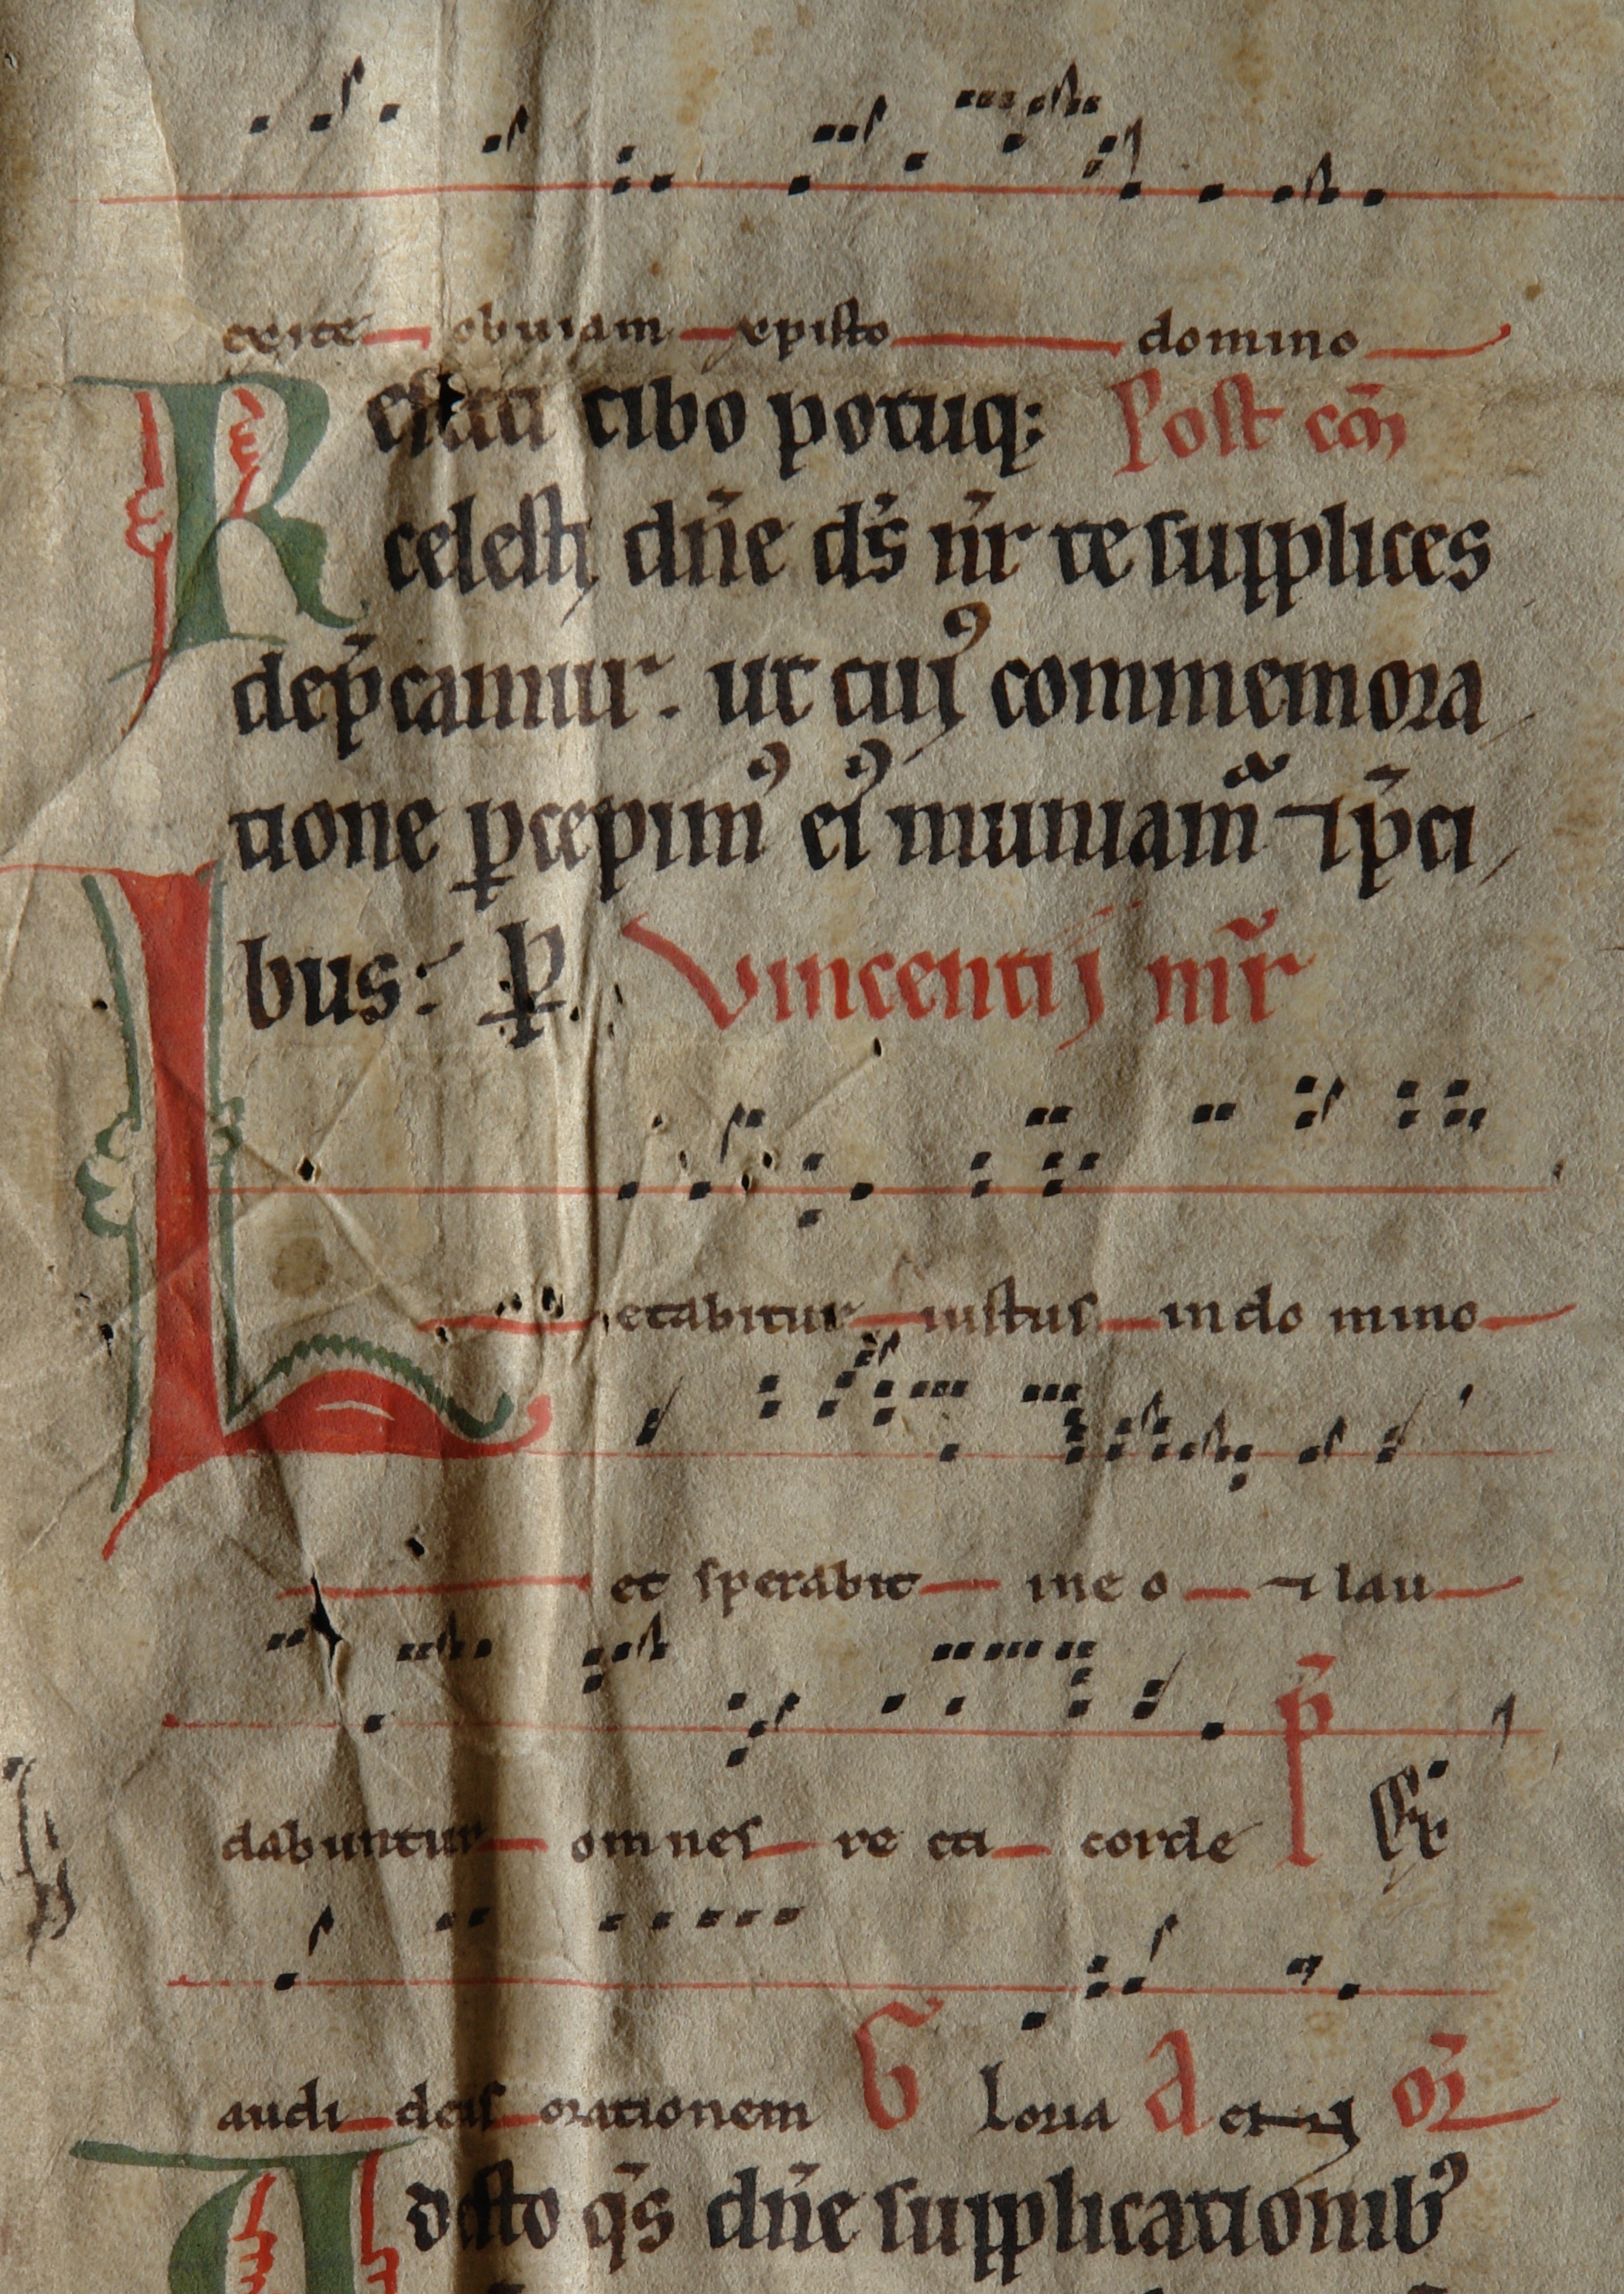 exite obuiam xpisto domino
Refecti cibo potuq; Post com̄
celesti dn̄e ds̄ nr̄ te supplices
dep̄camur. ut cuiꝰ commemora
tione ꝑcepimꝰ eiꝰ muniamᷓ ⁊ p̄ci
bus: ꝑ. Vincentij mr̄
Letabitur iustus in do mino
et sperabit in e o ⁊ lau
dabuntur omnes re cti corde p̄s Ex
audi deus orationem G loria A et or̄
Adesto qs̄ dn̄e supplicationibꝰ